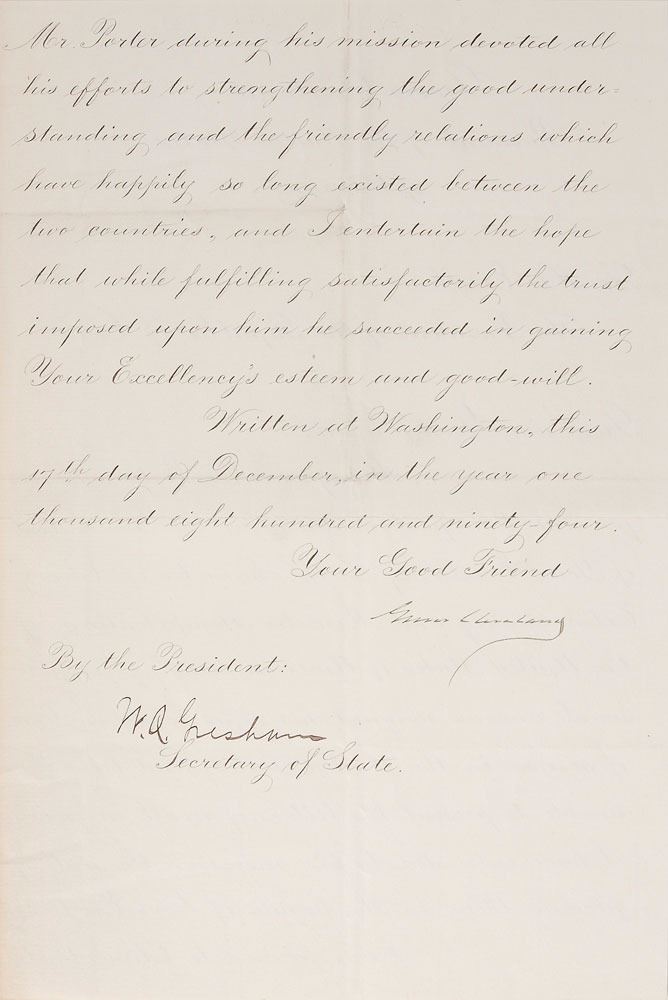 Mr. Porter during his mission devoted all
his efforts to strengthening the good under=
standing and the friendly relations which
have happily so long existed between the
two countries, and I entertain the hope
that while fulfilling satisfactorily the trust
imposed upon him he succeeded in gaining
Your Excellency's esteem and good-will.
Written at Washington, this
17th day of December, in the year one
thousand eight hundred and ninety-four.
Your Good Friend
Grover Cleveland
By the President:
W. Q. Gresham
Secretary of State.